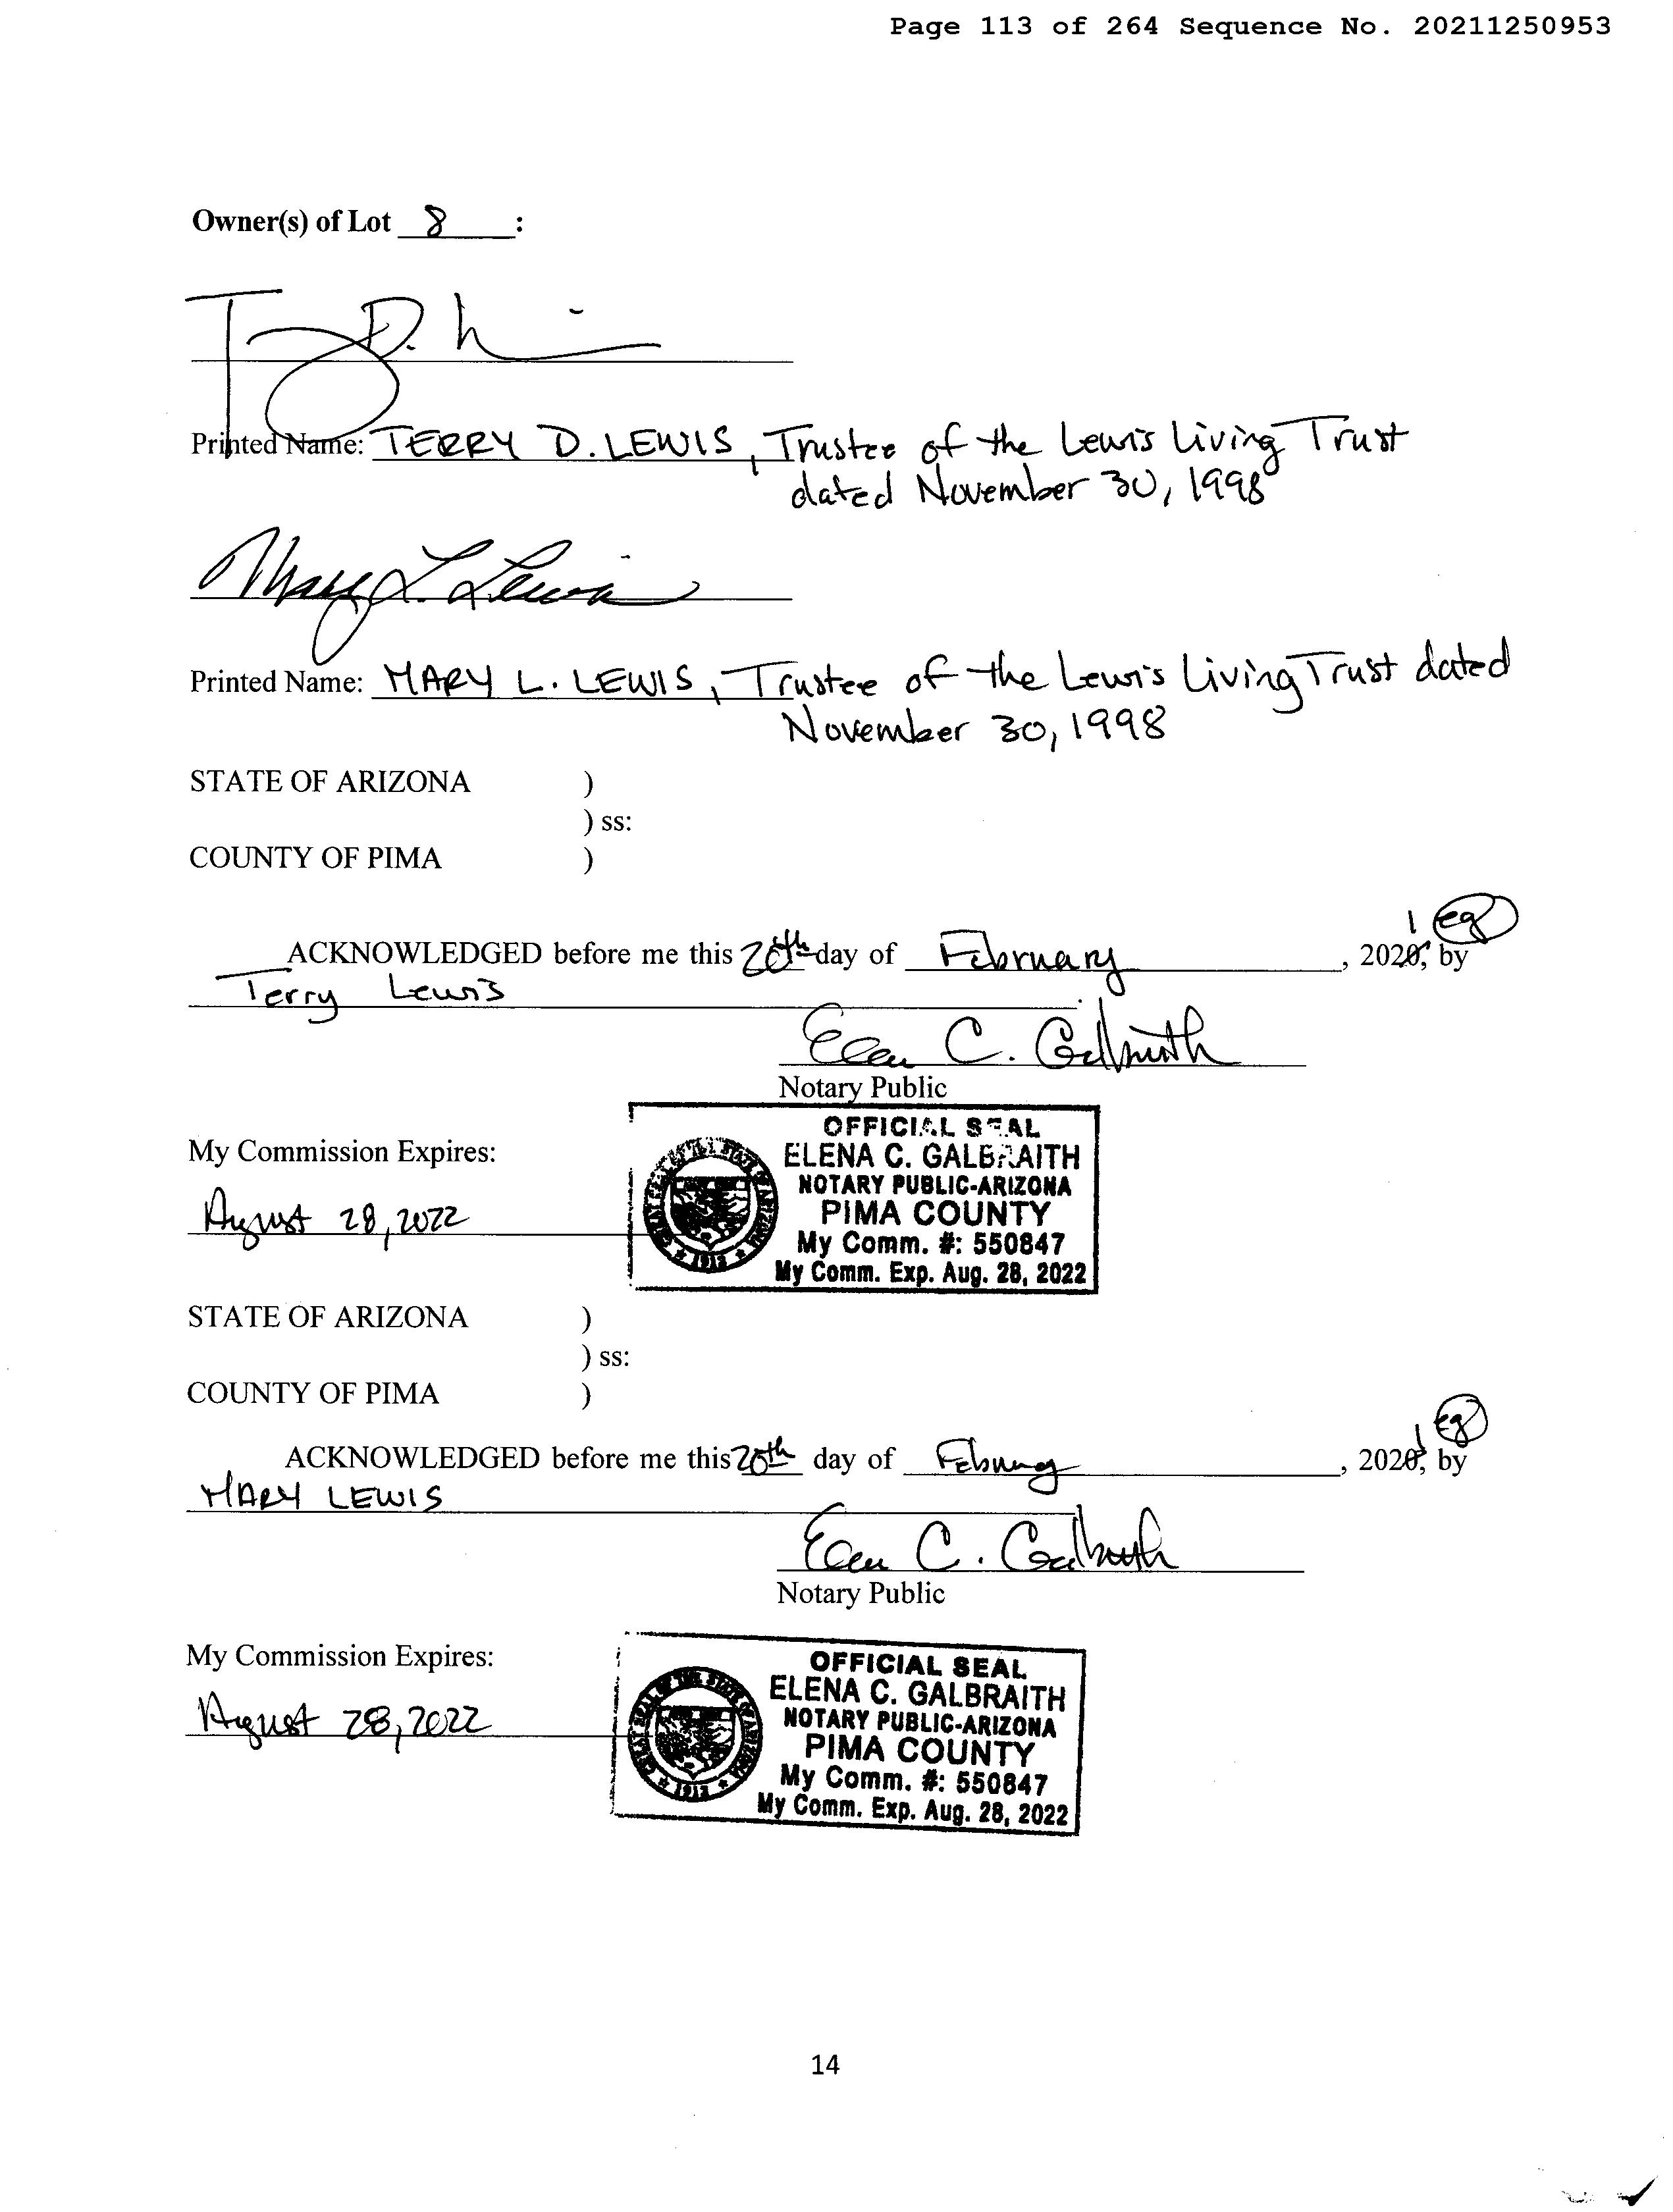 Page 113 of 264 Sequence No. 20211250953
Owner(s) of Lot 8 :
Printed Name: TERRY D. LEWIS, Trustee of the Lewis Living Trust
dated November 30, 1998
Mary L. Lewis
Printed Name: MARY L. LEWIS, Trustee of the Lewis Living Trust dated
November 30, 1998
STATE OF ARIZONA )
) ss:
COUNTY OF PIMA )
1 eg
ACKNOWLEDGED before me this 20th day of February, 2020, by
Terry Lewis
Elena C. Galbraith
Notary Public
OFFICIAL SEAL
ELENA C. GALBRAITH
NOTARY PUBLIC-ARIZONA
PIMA COUNTY
My Comm. #: 550847
My Comm. Exp. Aug. 28, 2022
GREAT SEAL OF THE STATE OF ARIZONA
1912
My Commission Expires:
August 28, 2022
STATE OF ARIZONA )
) ss:
COUNTY OF PIMA )
1 eg
ACKNOWLEDGED before me this 20th day of February, 2020, by
MARY LEWIS
Elena C. Galbraith
Notary Public
My Commission Expires:
August 28, 2022
OFFICIAL SEAL
ELENA C. GALBRAITH
NOTARY PUBLIC-ARIZONA
PIMA COUNTY
My Comm. #: 550847
My Comm. Exp. Aug. 28, 2022
GREAT SEAL OF THE STATE OF ARIZONA
1912
14